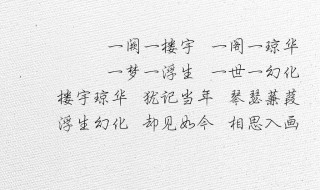 一阙一搂宇 一阁一琼华
一梦一浮生 一世一幻化
搂宇琼华 犹记当年 琴瑟蒹葭
浮生幻化 却见如今 相思入画